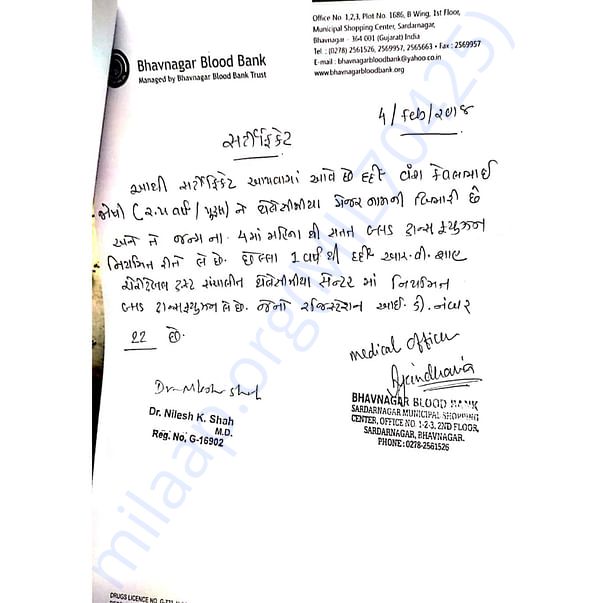 Office No. 1,2,3, Plot No. 1686, B Wing, 1st Floor,
Municipal Shopping Center, Sardarnagar,
Bhavnagar - 364 001 (Gujarat) India
Tel : (0278) 2561526, 2569957, 2565663 • Fax : 2569957
E-mail : bhavnagarbloodbank@yahoo.co.in
www.bhavnagarbloodbank.org
Bhavnagar Blood Bank
Managed by Bhavnagar Blood Bank Trust
4/feb/૨૦૧૪
સર્ટીફિકેટ
આથી સર્ટીફિકેટ આપવામાં આવે છે દર્દી વંશ કેવલભાઈ
જોષી (૨.૫ વર્ષ/પુરૂષ) ને થેલેસીમીયા મેજર નામની બિમારી છે
અને તે જન્મના 4માં મહિના થી સતત બ્લડ ટ્રાન્સફ્યુઝન
નિયમિત રીતે લે છે. છેલ્લા 1 વર્ષ થી દર્દી આર.વી. શાહ
ચેરીટેબલ ટ્રસ્ટ સંચાલીત થેલેસીમીયા સેન્ટર માં નિયમિત
બ્લડ ટ્રાન્સફ્યુઝન લે છે. જેનો રજિસ્ટ્રેશન આઈ.ડી. નંબર
22 છે.
medical officer
Dr. Nilesh Shah
Dr. Nilesh K. Shah
M.D.
Reg. No, G-16902
BHAVNAGAR BLOOD BANK
SARDARNAGAR MUNICIPAL SHOPPING
CENTER, OFFICE NO. 1-2-3, 2ND FLOOR,
SARDARNAGAR, BHAVNAGAR.
PHONE : 0278-2561526
milaap.org(MIL70425)
DRUGS LICENCE NO.